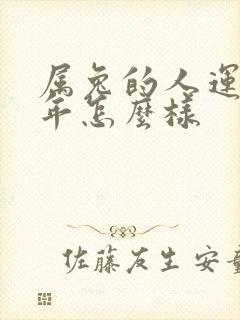 属兔的人運
年怎麼樣
佐藤友生 安